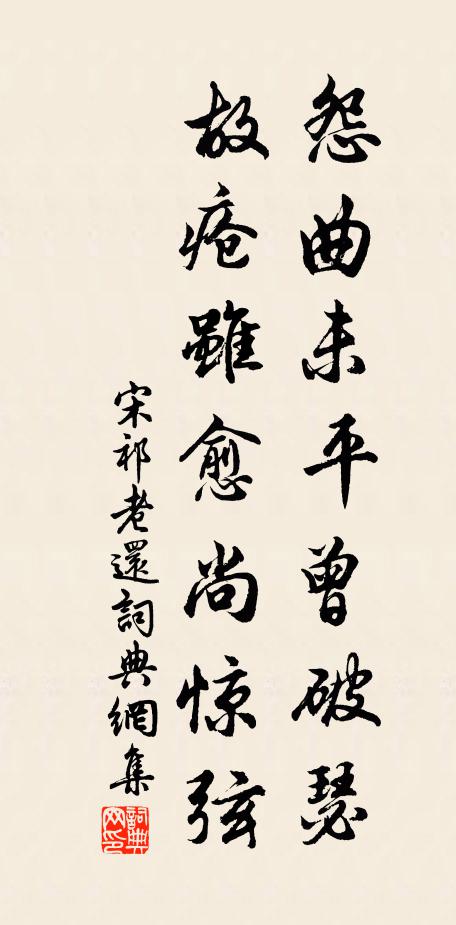 怨曲未平曾破瑟
故疮雖愈尚惊弦
宋祁老還詞典網集
詞典网印